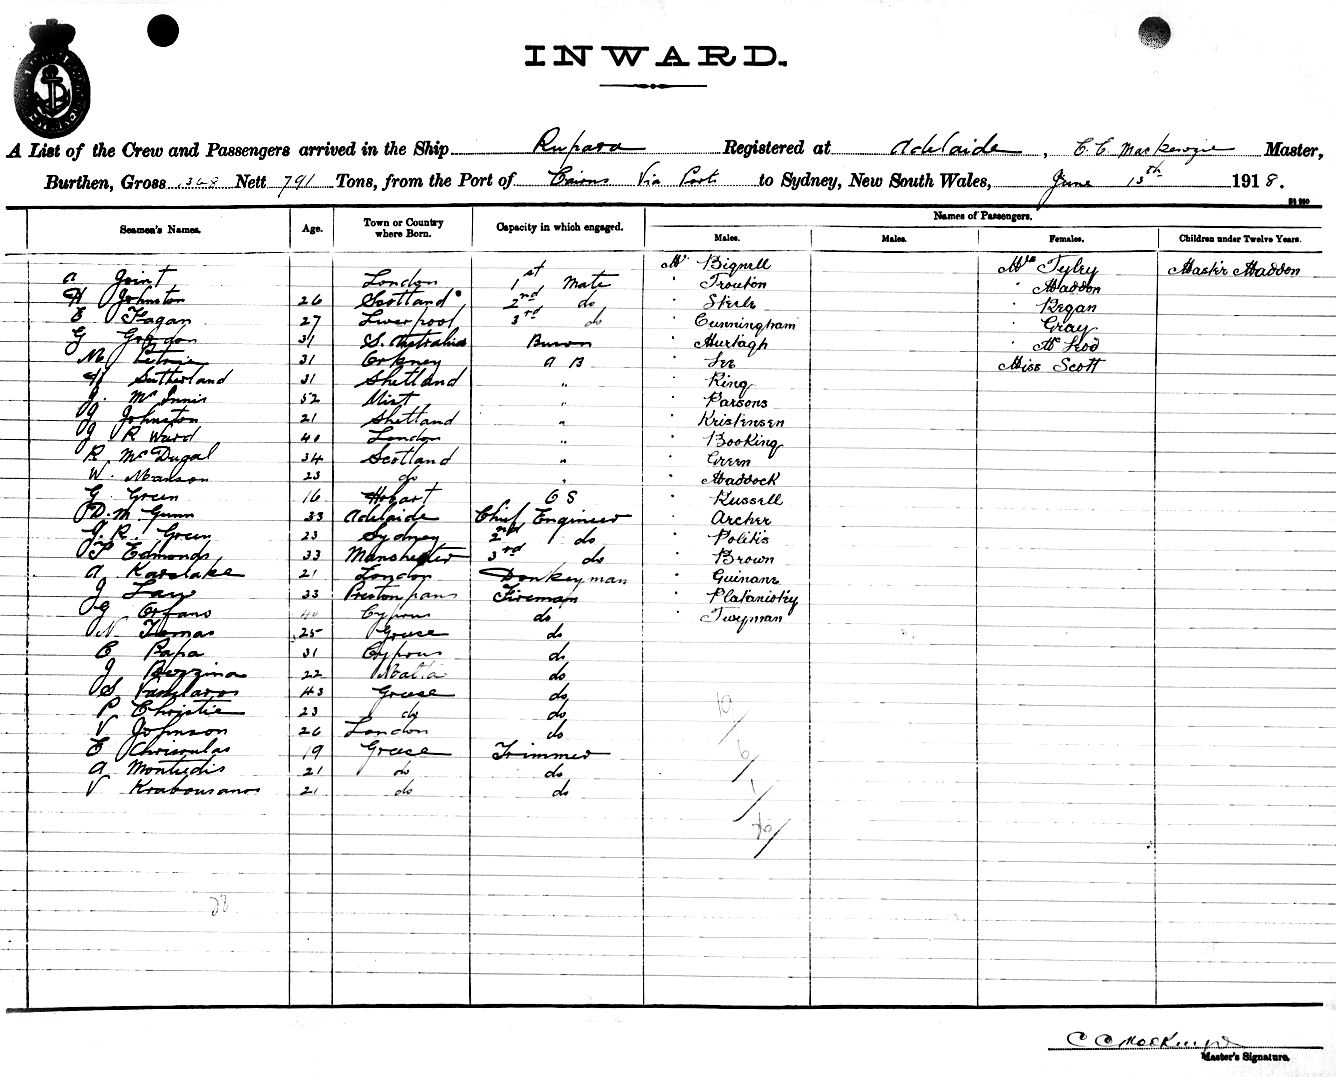 INWARD.
A List of the Crew and Passengers arrived in the Ship Rupara Registered at Adelaide, C. C. Mackenzie Master,
Burthen, Gross 1368 Nett 791 Tons, from the Port of Cairns Via Ports to Sydney, New South Wales, June 13th 1918.
Seamen's Names. Age. Town or Country where Born. Capacity in which engaged. Names of Passengers.
Males. Males. Females. Children under Twelve Years.
Mr Bignell Mrs Tyley Master Maddon
A Joint London 1st Mate " Trouton " Maddon
H Johnston 26 Scotland 2nd do " Steele " Regan
E Fagan 27 Liverpool 3rd do " Cunningham " Gray
G Gordon 31 S. Australia " Murtagh " McLeod
M Petrie 31 Orkney A B " Lee Miss Scott
Sutherland 31 Shetland " " King
J. McInnis 52 Uist " " Parsons
J Johnston 21 Shetland " " Kristensen
J R Ward 40 London " " Booking
R McDugal 34 Scotland " " Green
W. Manson 23 do " " Maddock
G. Green 16 Hobart O S " Russell
D. M. Gunn 33 Adelaide Chief Engineer " Archer
J. R. Green 23 Sydney 2nd do " Politis
P Edmonds 33 Manchester 3rd do " Brown
A Karslake 21 London Donkeyman " Guinane
J Law 33 Prestonpans Fireman " Plataniotky
G Orfano 40 Cyprus do " Twyman
N. Tomas 25 Greece do
C Papa 31 Cyprus do
J Bezzina 22 Malta do
S 43 Greece do
P Christie 23 do do
V Johnson 26 London do
E Chrisoulas 19 Greece Trimmer
A 21 do do
V Krabousanos 21 do do
19
6
1
26
28
C C Mackenzie
Master's Signature.